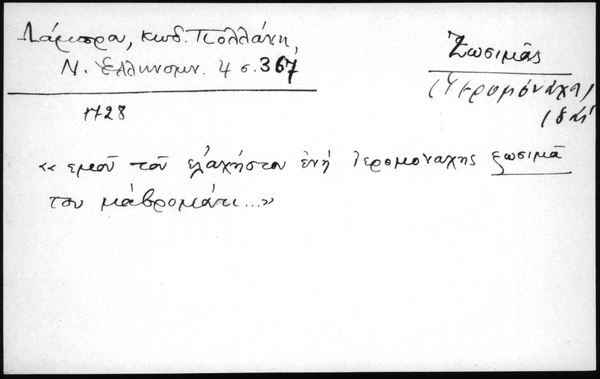 Λάμπρα, κωδ. Πολλάνη,
Ν. Ἑλληνομν. 4 σ. 367
Ζωσιμᾶς
(Ἱερομόναχος)
18αἰ
1728
« εμοῦ τοῦ ελ'αχήστου ἐνἡ Ἱερομοναχης ζωσιμᾶ
του μαβρομάτι...»